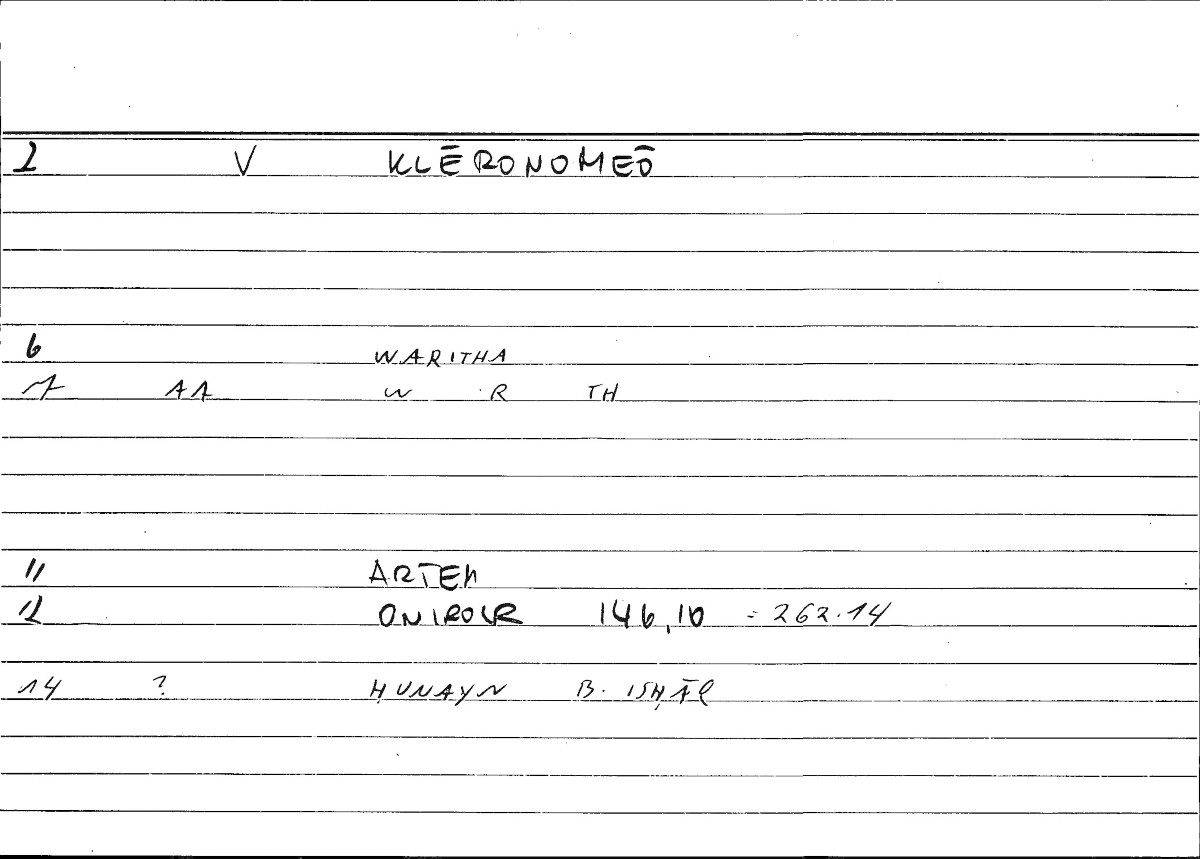 2 V KLĒRONOMEŌ
6 WARITHA
7 AA W R TH
11 ARTEM
12 ONIROCR 146,10 = 262.14
14 ? ḤUNAYN B. ISḤĀQ